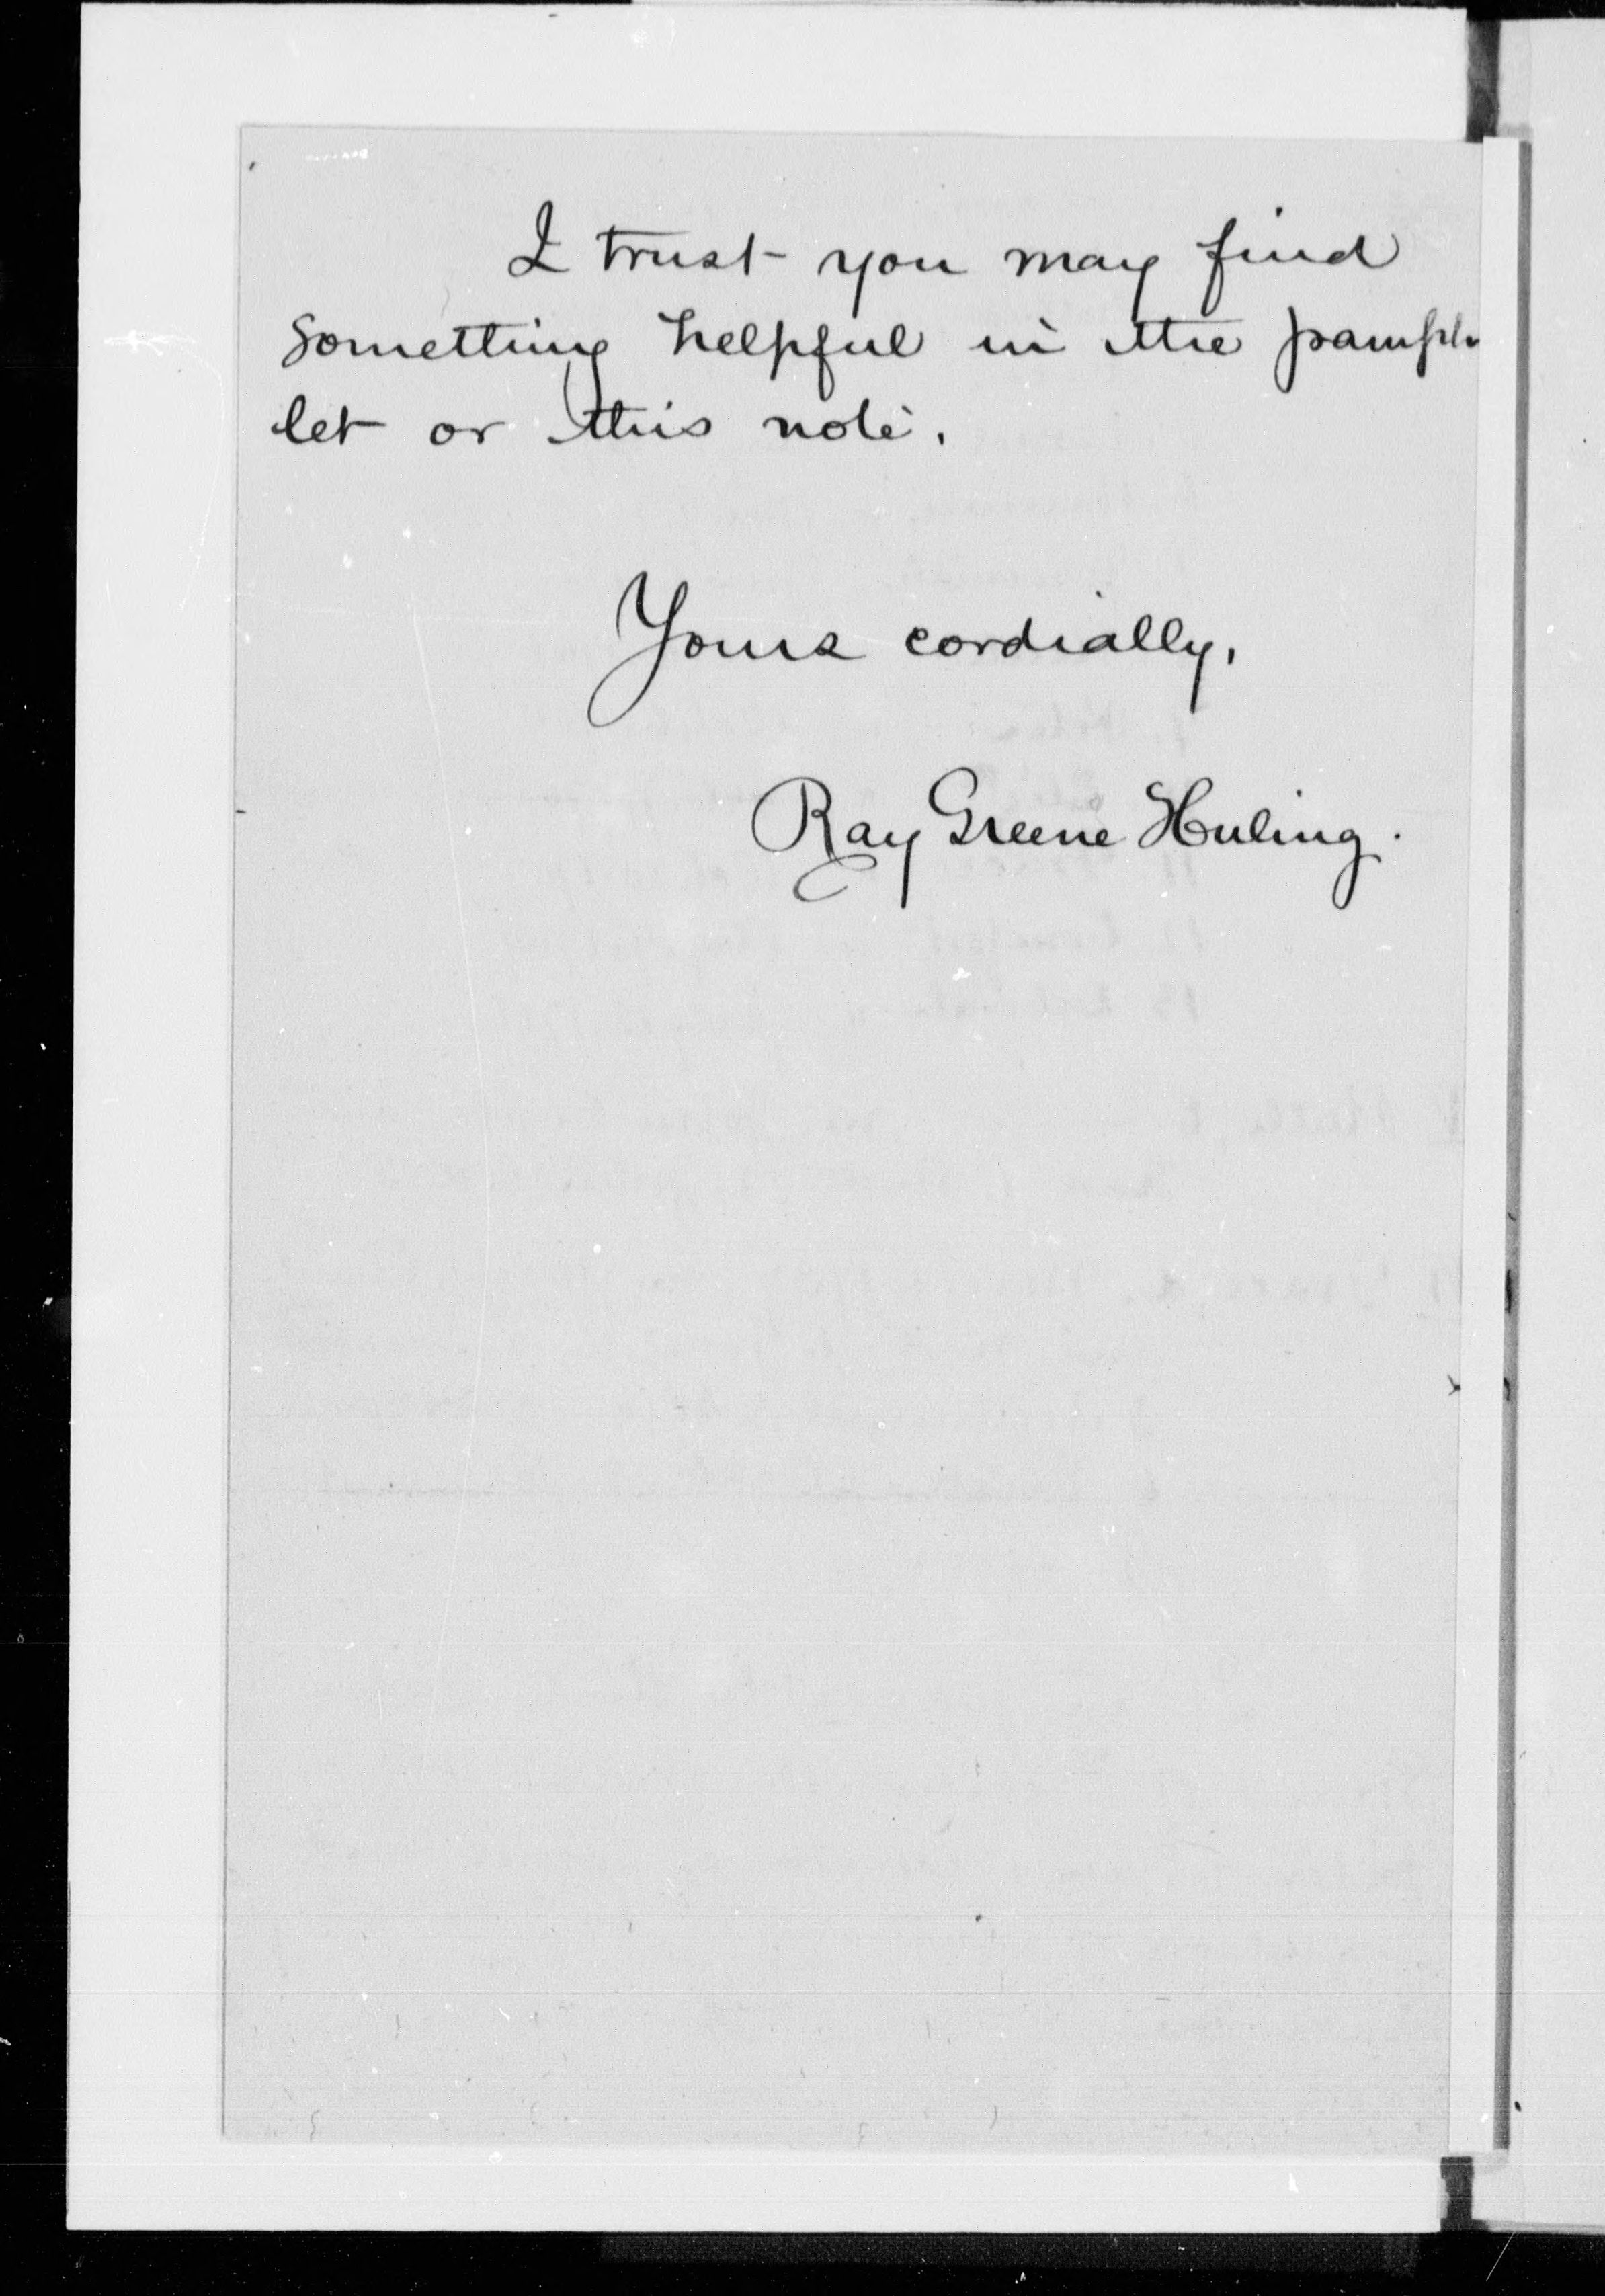 I trust you may find
something helpful in the pamph-
let or this note.
Yours cordially,
Ray Greene Huling.